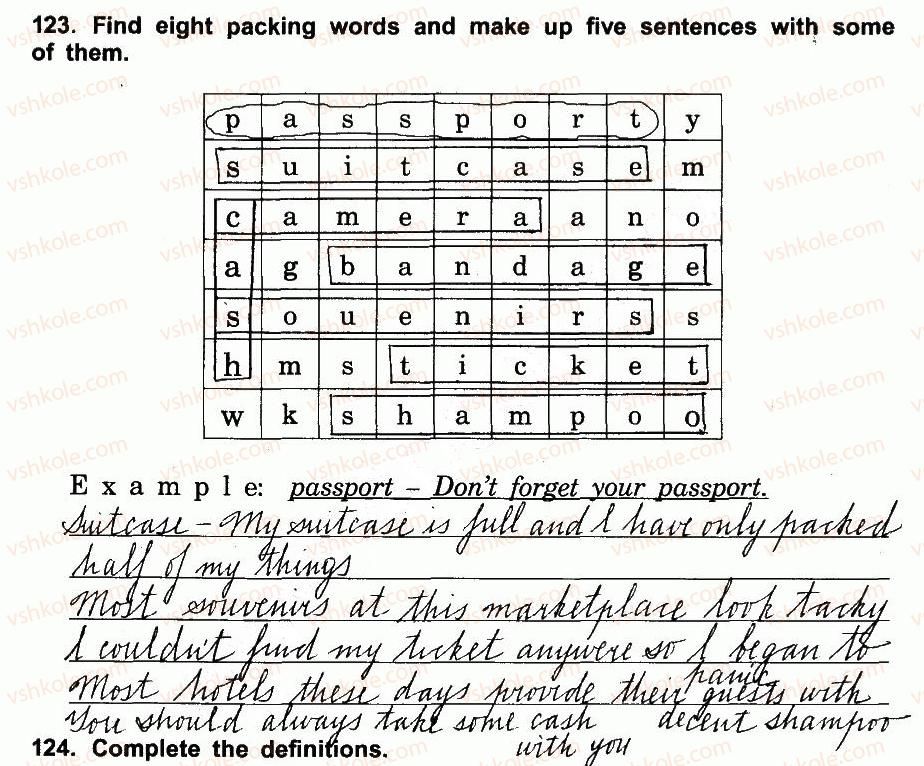 123. Find eight packing words and make up five sentences with some
of them.
p a s s p o r t y
s u i t c a s e m
c a m e r a a n o
a g b a n d a g e
s o u e n i r s s
h m s t i c k e t
w k s h a m p o o
Example: passport – Don't forget your passport.
Suitcase – My suitcase is full and I have only packed
half of my things
Most souvenirs at this marketplace look tacky
I couldn't find my ticket anywere so I began to
panic
Most hotels these days provide their guests with
decent shampoo
You should always take some cash
with you
124. Complete the definitions.